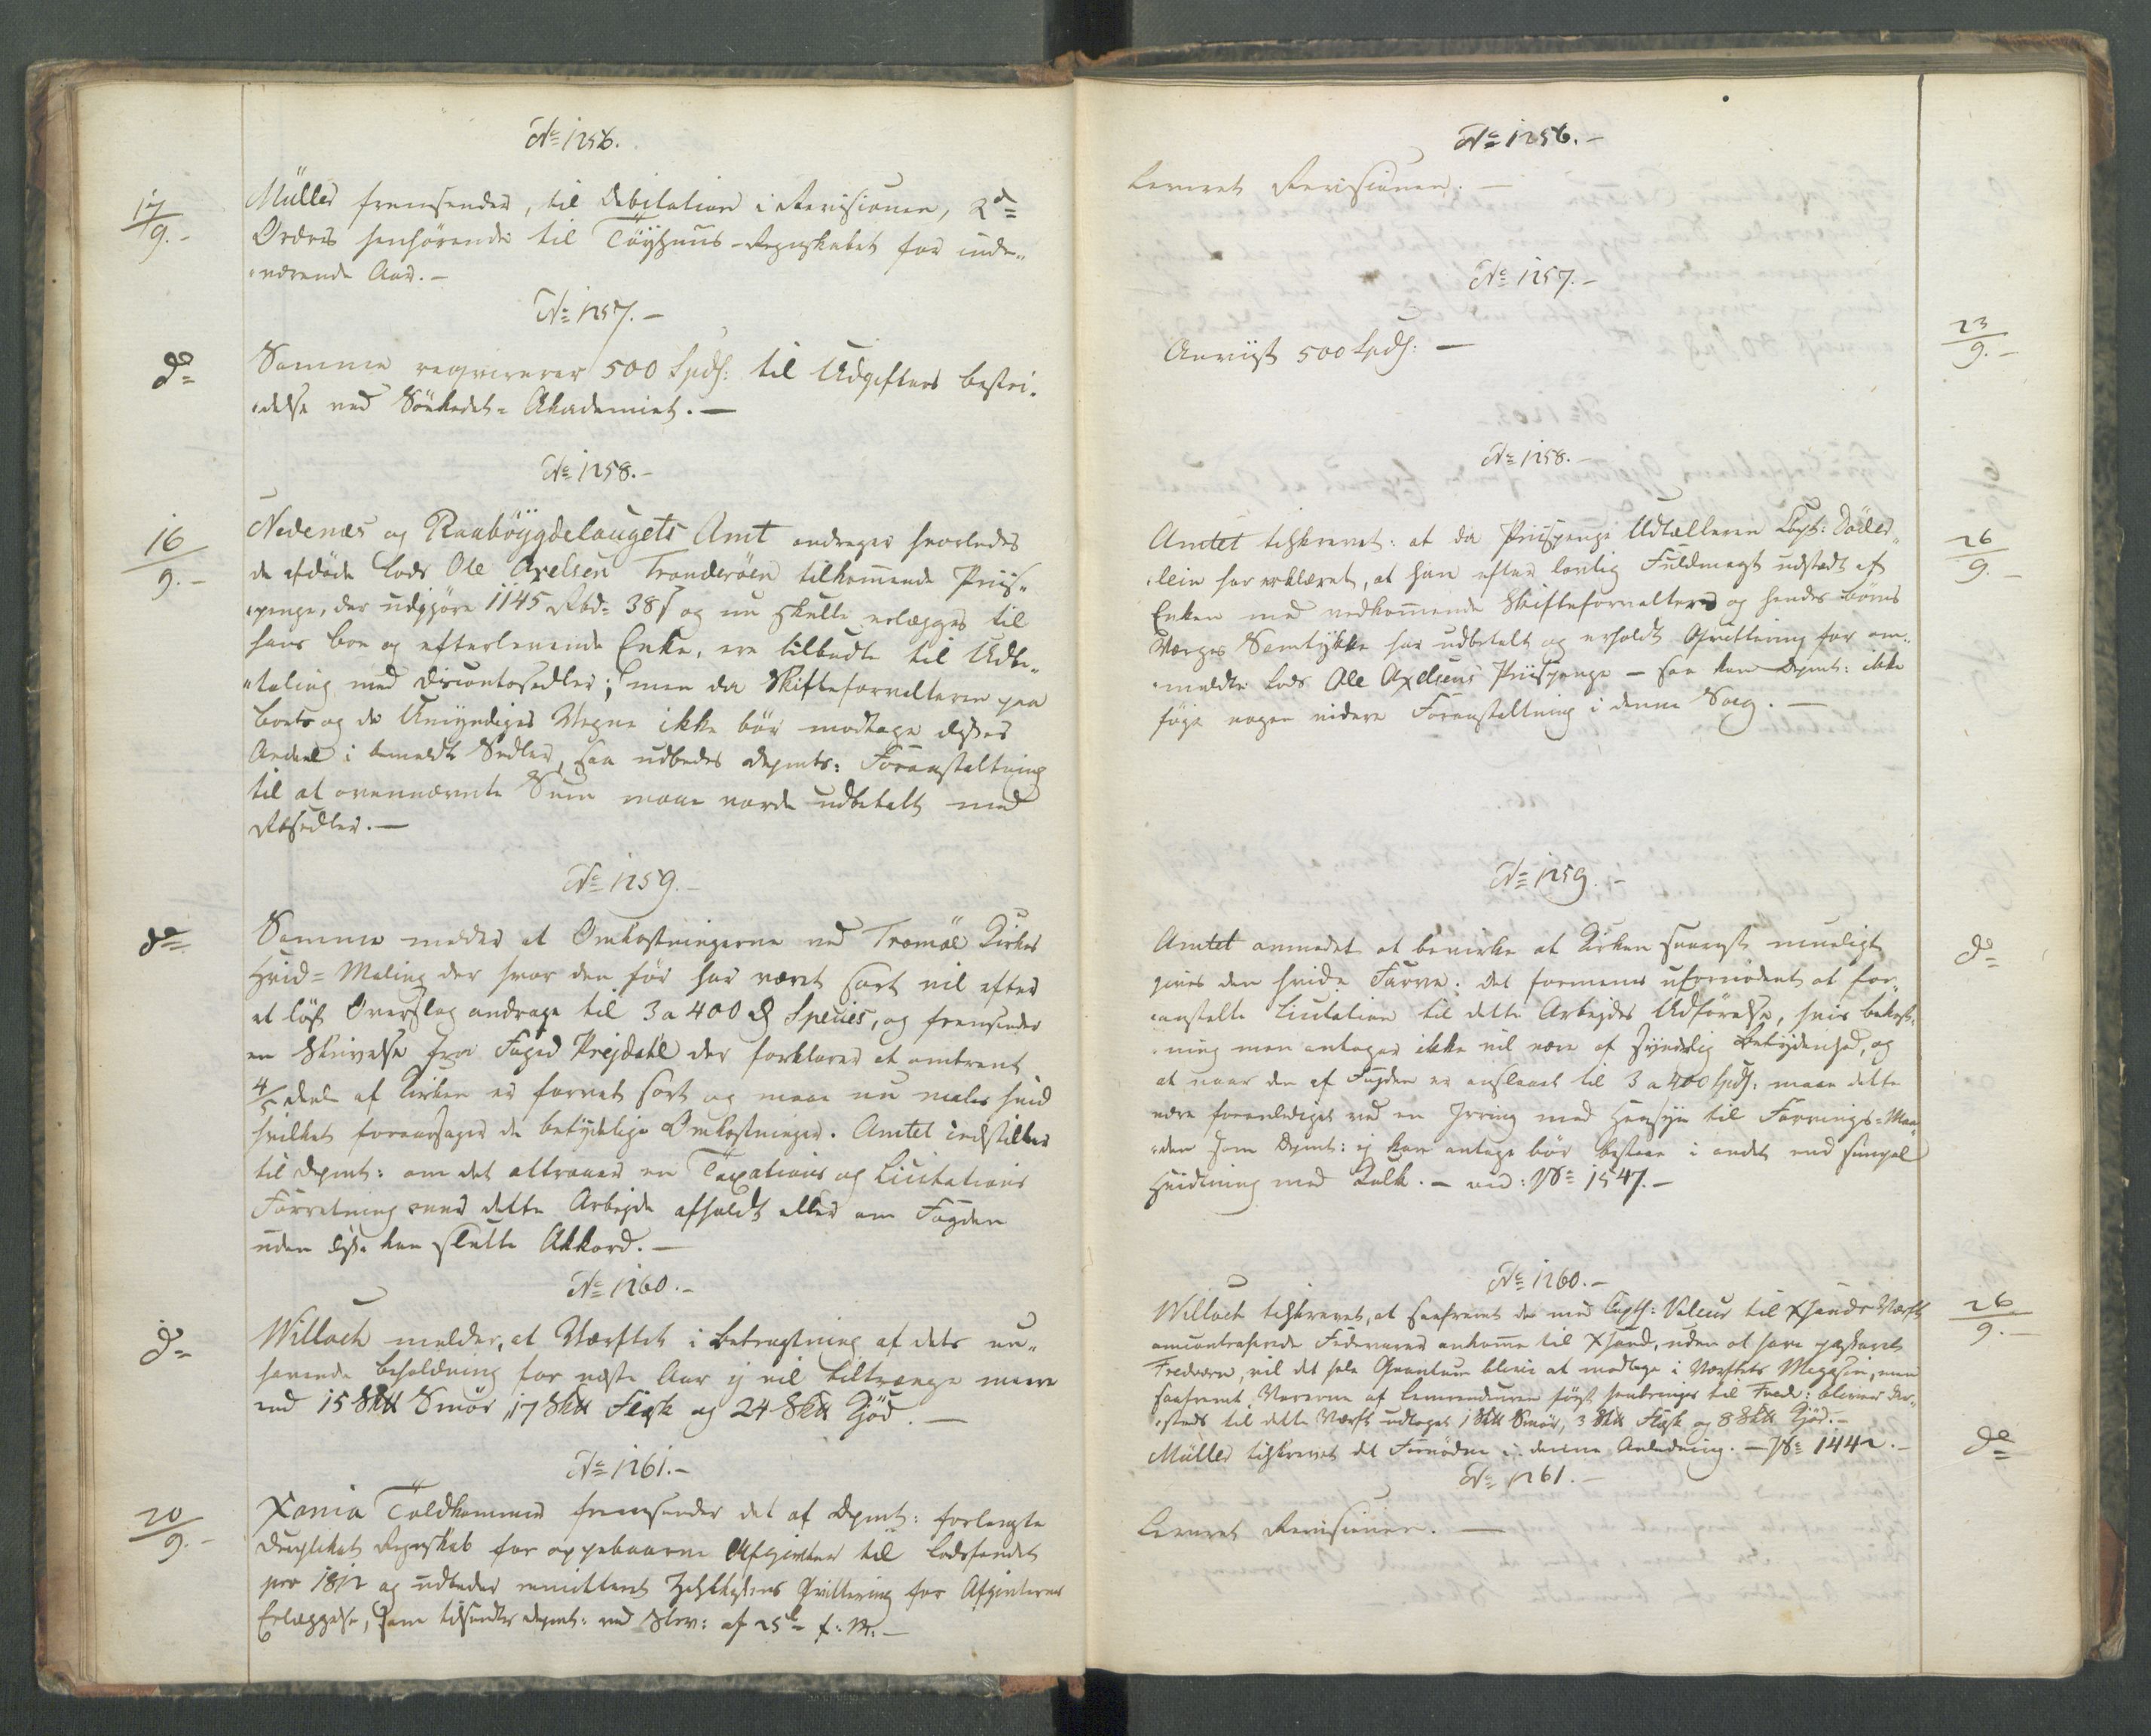 No 1256.
17/9.- Müller fremsender, til Debitation i Revisionen, 2de
Ordres henhørende til Töyhuus-Regnskabet for inde-
værende Aar.-
No 1257.-
do Samme reqvirerer 500 Spds: til Udgifters bestri-
delse ved Söekadet-Akademiet.-
No 1258.-
16/9.- Nedenæs og Raaböygdelaugets Amt andrager hvorledes
de afdöde Lods Ole Axelsen Tronderöen tilkommende Priis-
penge, der udgjöre 1145 Rbd= 38 s og nu skulle erlægges til
hans boe og efterlevende Enke, ere tilbudte til Udbe-
taling med Discontosedler; men da Skifteforvalteren paa
boets og de Umyndiges Vegne ikke bör modtage disses
Andeel i bemeldte Sedler, saa udbedes Depmts: Foranstaltning
til at ovennævnte Sum maae vorde udbetalt med
Rbsedler.-
No 1259.-
do Samme melder at Omkostningerne ved Tromöe Kirkes
Hvid-Maling der hvor den för har været sort vil efter
et löst Overslag andrage til 3 a 400 Rd Species, og fremsender
en Skrivelse fra Foged Prejdahl der forklarer at omtrent
4/5 dele af Kirken er farvet sort og maae nu males hvid
hvilket foraarsager de betydelige Omkostninger. Amtet indstiller
til Depmt: om det attraaer en Taxations og Licitations
Forretning over dette Arbejde afholdt eller om Fogden
uden disse kan slutte Akkord.-
No 1260.-
do Willoch melder, at Værftet i betragtning af dets nu-
havende beholdning for næste Aar ej vil tiltrænge mere
end 15 Sk℔ Smör, 17 Sk℔ Flesk og 24 Sk℔ Kjöd.-
No 1261.-
20/9.- Xania Toldkammer fremsender det af Depmt: forlangte
Duplikat Regnskab for oppebaarne Afgivter til Lodsfondet
pro 1812 og udbeder remitteret Zahlkassens Qvittering for Afgivternes
Erlæggelse, som tilsendtes Depmt: ved Skriv: af 25de f. M.-
No 1256.-
Leveret Revisionen.-
No 1257.-
Anviist 500 Spds:- 23/9.-
No 1258.-
Amtet tilskrevet: at da Priispenge Udtælleren Capt: Döder- 26/9.-
lein har erklæret, at han efter lovlig Fuldmagt udstædt af
Enken med vedkommende Skifteforvalters og hendes börns
Værges Samtykke har udbetalt og erholdt Qvittering for om-
meldte Lods Ole Axelsens Priispenge - saa kan Depmt: ikke
föje nogen videre Foranstaltning i denne Sag.-
No 1259.-
Amtet anmodet at bevirke at Kirken snarest mueligt do
gives den hvide Farve; det formenes ufornödent at for-
anstalte Licitation til dette Arbejdes Udförelse, hvis bekost-
ning man antager ikke vil være af synderlig Betydenhed, og
at naar den af Fogden er anslaaet til 3 a 400 Spds: maae dette
være foranlediget ved en Irring med Hensyn til Farvnings-Maa-
den som Depmt: ej kan antage bör bestaae i andet end simpel
Hvidtning med Kalk.- vid: No 1547.-
No 1260.-
Willoch tilskrevet, at saafremt de med Capth: Valeur til Xsands Værft 26/9.-
omcontraherede Fedevarer ankomme til Xsand, uden at have passeret
Fredværn, vil det hele Qvantum blive at modtage i Værftets Magazin, men
saafremt Varerne af Leverandeuren först henbringes til Fred: bliver der-
steds til dette Værft udtages 1 Sk℔ Smör, 3 Sk℔ Flesk og 8 Sk℔ Kjöd.-
Müller tilskrevet det Fornödne i denne Anledning.- No 1442.- do
No 1261.-
Leveret Revisionen.-